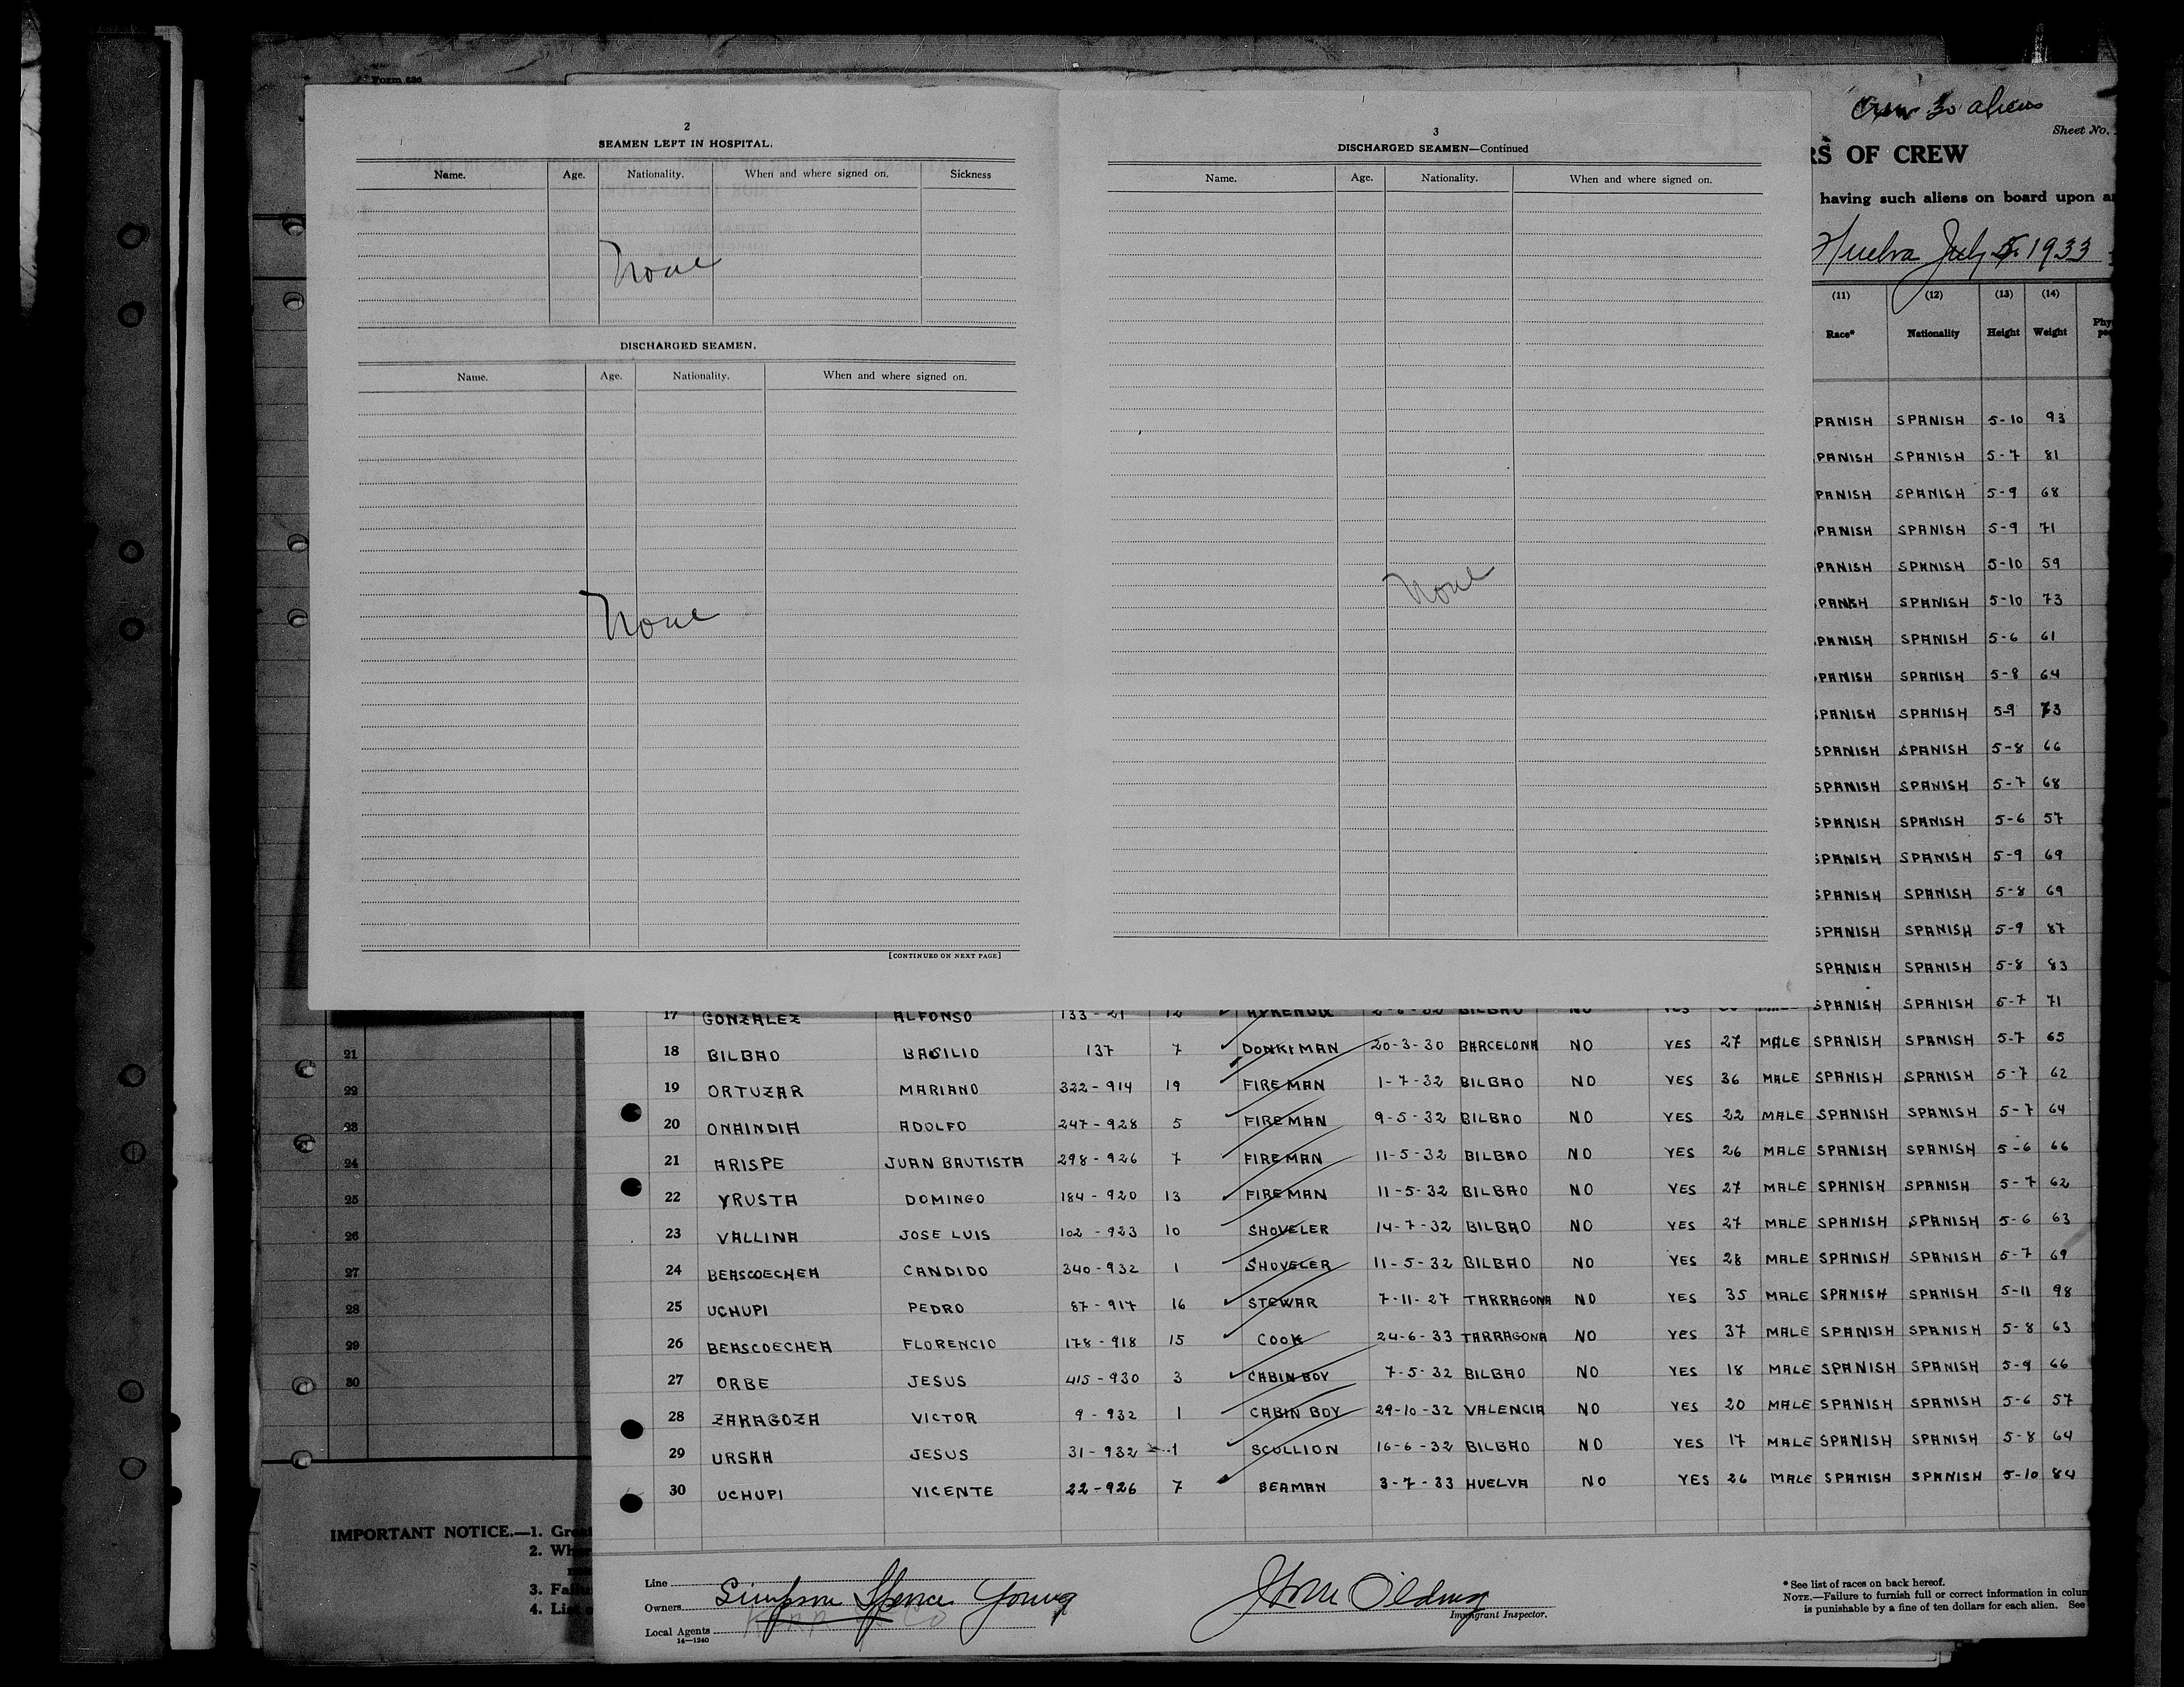 Form 630
Crew 30 aliens
Sheet No.
RS OF CREW
having such aliens on board upon a
Huelva July 5 1933
2
SEAMEN LEFT IN HOSPITAL.
Name. Age. Nationality. When and where signed on. Sickness
None
DISCHARGED SEAMEN.
Name. Age. Nationality. When and where signed on.
None
[CONTINUED ON NEXT PAGE]
3
DISCHARGED SEAMEN—Continued
Name. Age. Nationality. When and where signed on.
None
(11) (12) (13) (14)
Race* Nationality Height Weight
PANISH SPANISH 5-10 93
PANISH SPANISH 5-7 81
PANISH SPANISH 5-9 68
PANISH SPANISH 5-9 71
PANISH SPANISH 5-10 59
PANISH SPANISH 5-10 73
PANISH SPANISH 5-6 61
PANISH SPANISH 5-8 64
PANISH SPANISH 5-9 73
SPANISH SPANISH 5-8 66
SPANISH SPANISH 5-7 68
SPANISH SPANISH 5-6 57
SPANISH SPANISH 5-9 69
SPANISH SPANISH 5-8 69
SPANISH SPANISH 5-9 87
SPANISH SPANISH 5-8 83
17 GONZALEZ ALFONSO 133-21 12 BILBAO NO YES SPANISH SPANISH 5-7 71
18 BILBAO BASILIO 137 7 DONKIMAN 20-3-30 BARCELONA NO YES 27 MALE SPANISH SPANISH 5-7 65
19 ORTUZAR MARIANO 322-914 19 FIREMAN 1-7-32 BILBAO NO YES 36 MALE SPANISH SPANISH 5-7 62
20 ONAINDIA ADOLFO 247-928 5 FIREMAN 9-5-32 BILBAO NO YES 22 MALE SPANISH SPANISH 5-7 64
21 ARISPE JUAN BAUTISTA 298-926 7 FIREMAN 11-5-32 BILBAO NO YES 26 MALE SPANISH SPANISH 5-6 66
22 YRUSTA DOMINGO 184-920 13 FIREMAN 11-5-32 BILBAO NO YES 27 MALE SPANISH SPANISH 5-7 62
23 VALLINA JOSE LUIS 102-923 10 SHOVELER 14-7-32 BILBAO NO YES 27 MALE SPANISH SPANISH 5-6 63
24 BEASCOECHEA CANDIDO 340-932 1 SHOVELER 11-5-32 BILBAO NO YES 28 MALE SPANISH SPANISH 5-7 69
25 UCHUPI PEDRO 87-917 16 STEWAR 7-11-27 TARRAGONA NO YES 35 MALE SPANISH SPANISH 5-11 98
26 BEASCOECHEA FLORENCIO 178-918 15 COOK 24-6-33 TARRAGONA NO YES 37 MALE SPANISH SPANISH 5-8 63
27 ORBE JESUS 415-930 3 CABIN BOY 7-5-32 BILBAO NO YES 18 MALE SPANISH SPANISH 5-9 66
28 ZARAGOZA VICTOR 9-932 1 CABIN BOY 29-10-32 VALENCIA NO YES 20 MALE SPANISH SPANISH 5-6 57
29 URSAA JESUS 31-932 1 SCULLION 16-6-32 BILBAO NO YES 17 MALE SPANISH SPANISH 5-8 64
30 UCHUPI VICENTE 22-926 7 SEAMAN 3-7-33 HUELVA NO YES 26 MALE SPANISH SPANISH 5-10 84
21
22
23
24
25
26
27
28
29
30
IMPORTANT NOTICE.—1. Gre
2. Wh
3. Fa
4. Li
Line
Owners Simpson Spence Young
Local Agents
14—1240
Immigrant Inspector.
* See list of races on back hereof.
NOTE.—Failure to furnish full or correct information in colum
is punishable by a fine of ten dollars for each alien. See